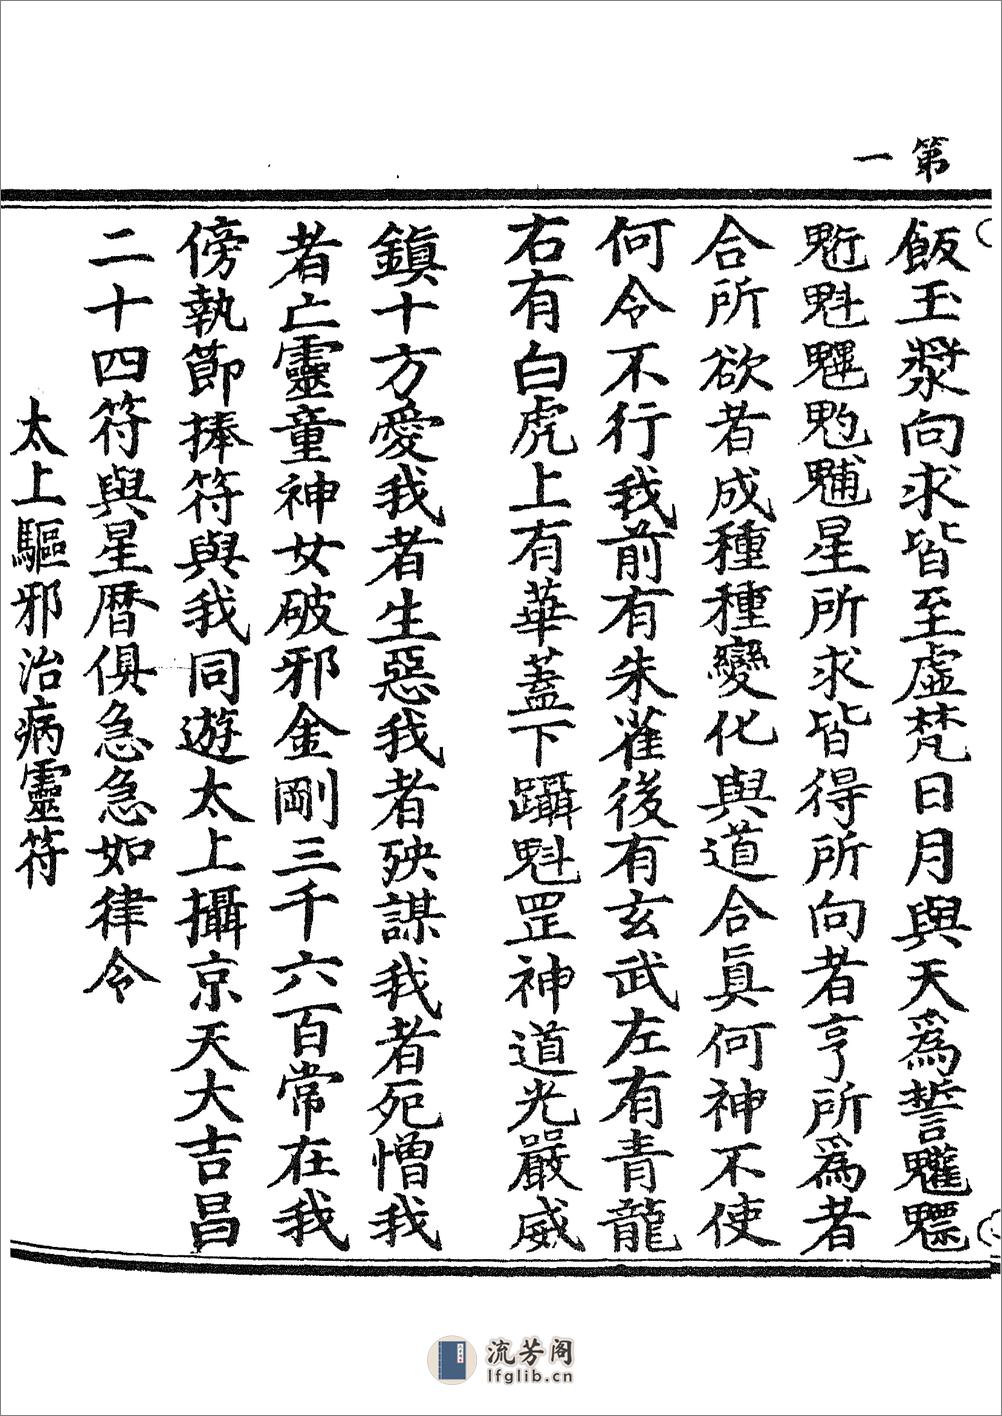 第一
飯玉漿向求皆至虛梵日月與天爲誓魒
魁魓星所求皆得所向者亨所爲者
合所欲者成種種變化與道合眞何神不使
何令不行我前有朱雀後有玄武左有青龍
右有白虎上有華蓋下躡魁罡神道光嚴威
鎮十方愛我者生惡我者殃謀我者死憎我
者亡靈童神女破邪金剛三千六百常在我
傍執節捧符與我同遊太上攝京天大吉昌
二十四符與星曆俱急急如律令
太上驅邪治病靈符
流芳阁
lfglib.cn